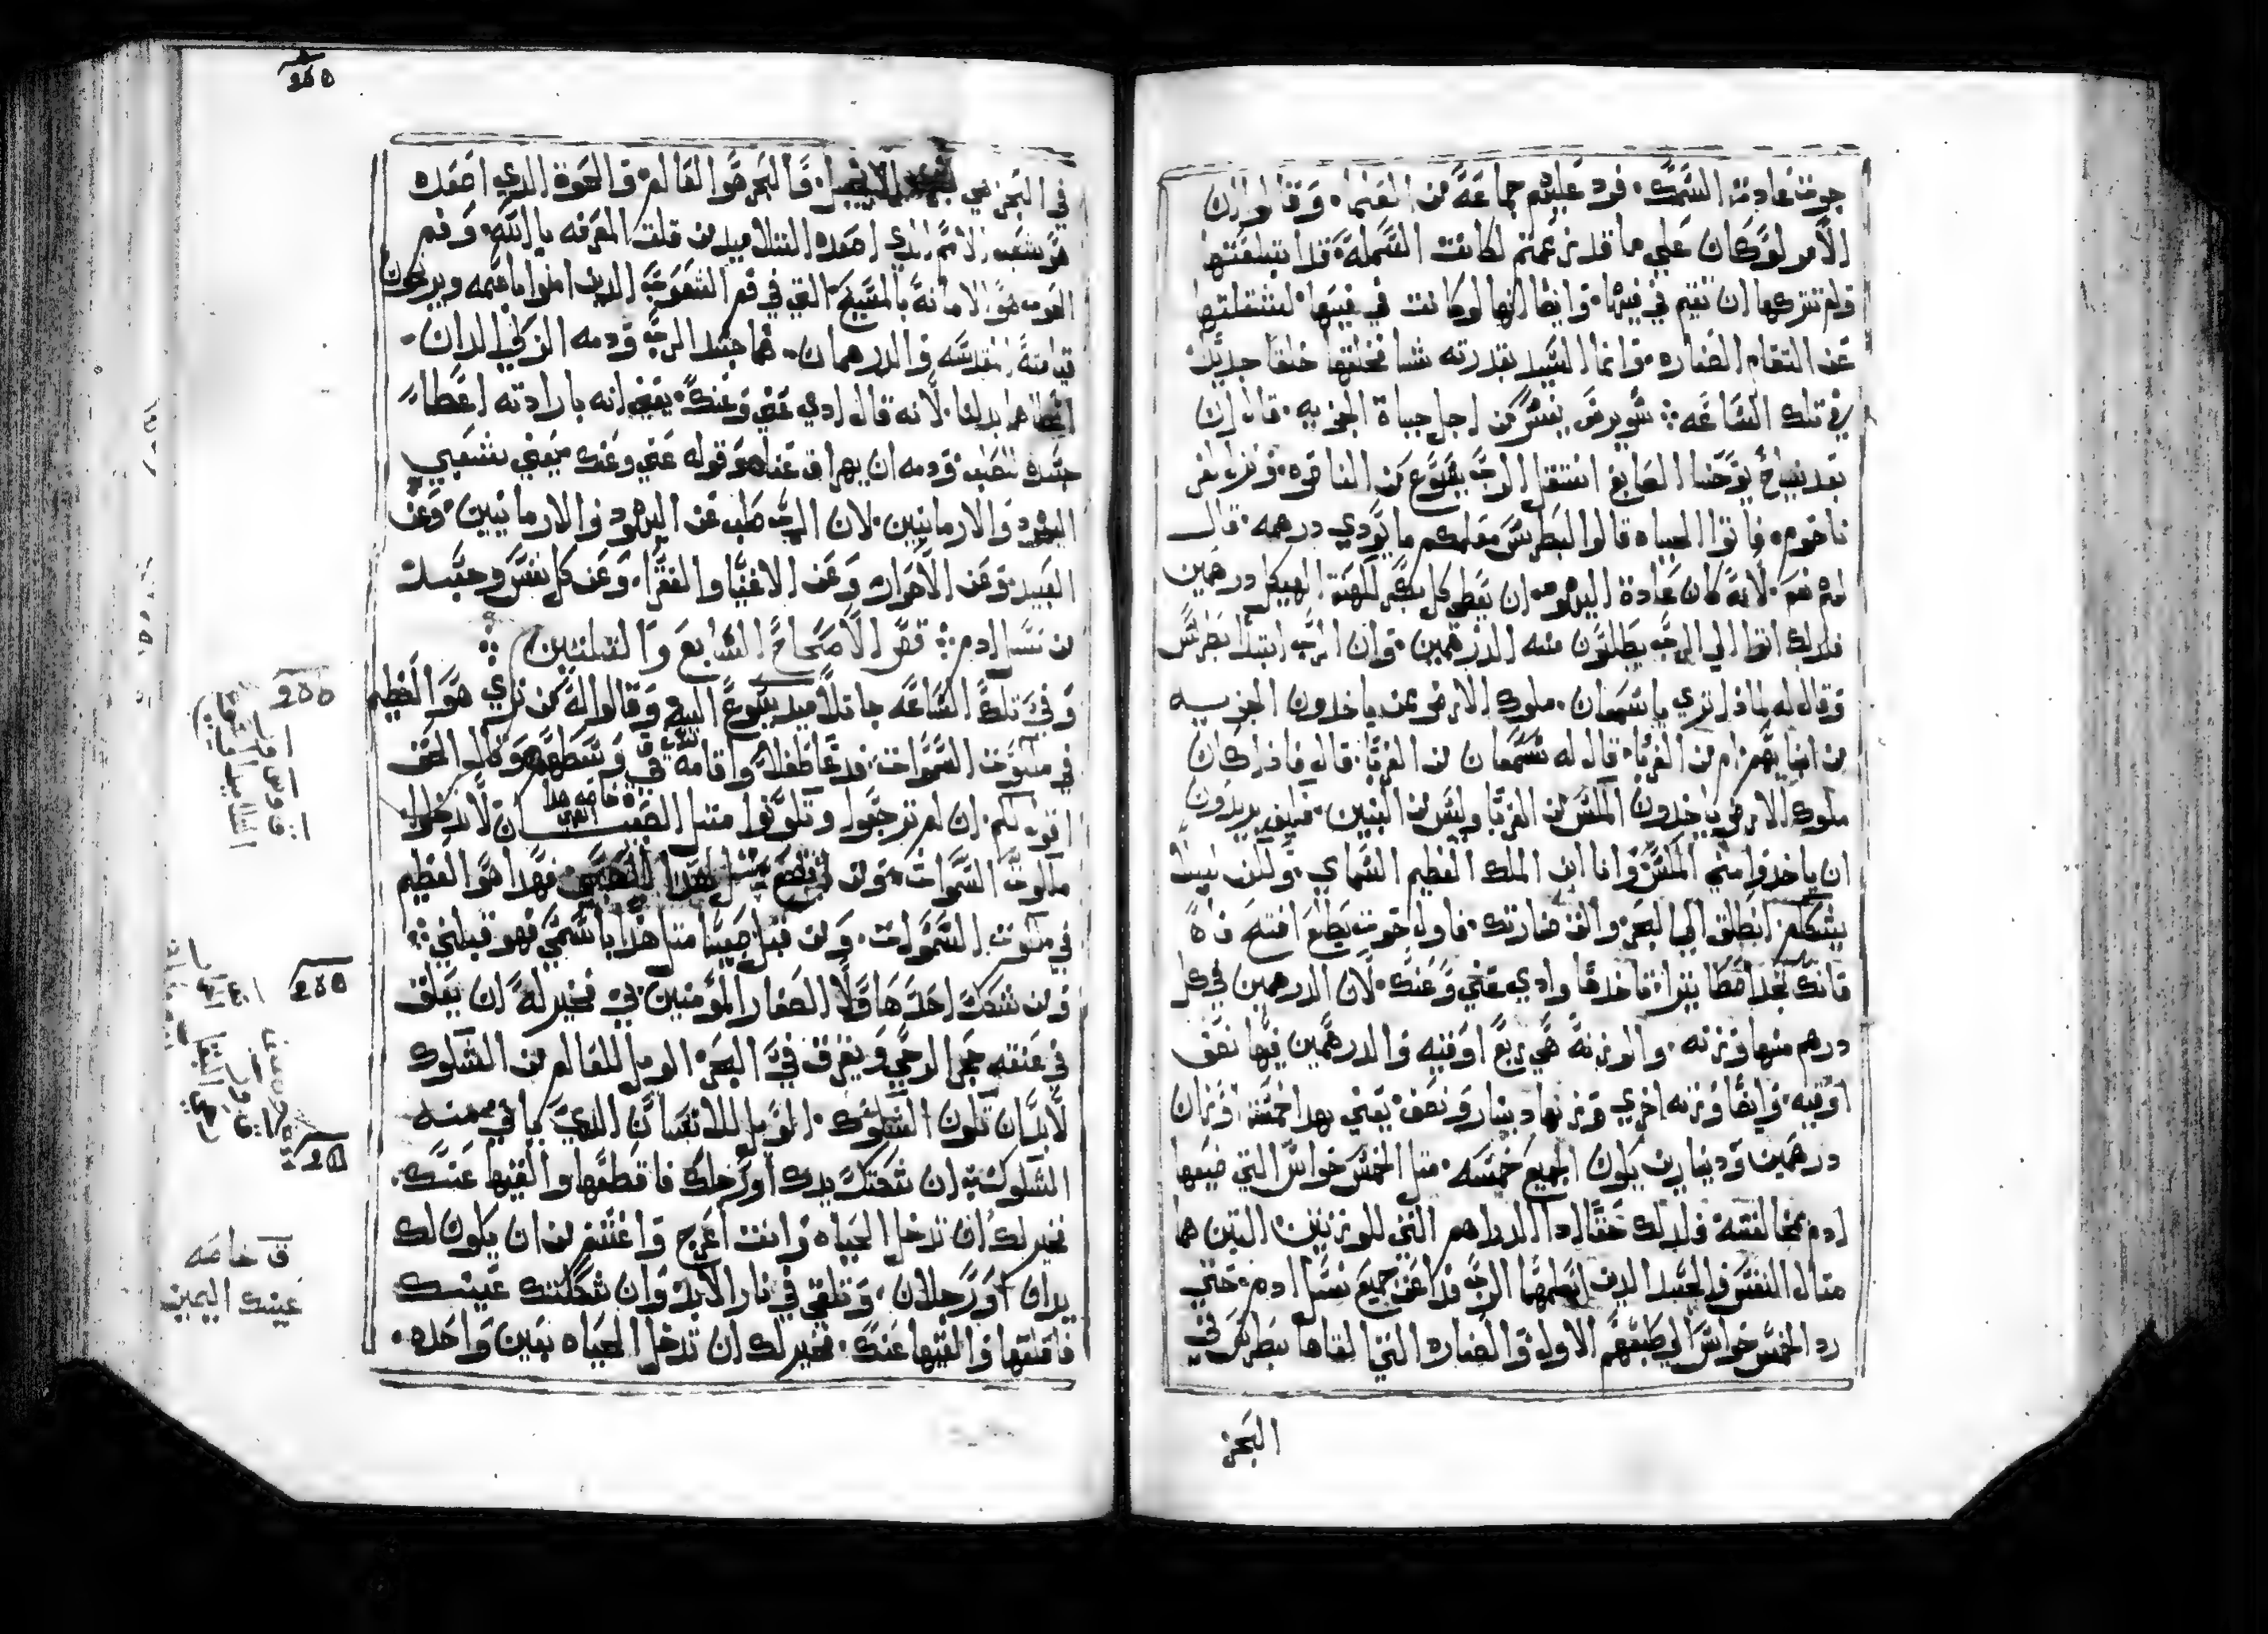 جوت عادت السمك. فرد عليهم جماعة من العلما. وقالوا ان
الامر لو كان علي ما قد زعمتم لكانت السمكة قد ابتلعتها
ولم تتركها ان تقيم في فيها. وايضا انها لو كانت في فيها. لشغلتها
عن التقام الصناره. وانما السيد بقدرته شا فخلقها خلقا جديدا
في تلك الساعه
من اجل جباة الجزيه. قال ان
بعد نياح يوحنا الصابغ انتقل الرب يسوع من الناصره. ونزل الي كفر
ناحوم. فاتوا الجباه قالوا لبطرس معلمكم ما يودي درهمه. قال
لهم نعم. لانه كان عادة اليهود ان يعطي كل بكر لكهنة الهيكل درهمين
فلذلك اتوا الي الرب يطلبون منه الدرهمين. وان الرب ابتدا بطرس
وقال له لماذا تري يا سمعان. ملوك الارض ممن ياخدون الجزيه
من ابنايهم ام من الغربا. قال له سمعان من الغربا. قال فاذا كان
ملوك الارض ياخدون المكس من الغربا وليس من البنين. فكيف يريدون
ان ياخدوا مني المكس وانا ابن الملك العظيم السماي. ولكن ليلا
نشككم. انطلق الي البحر والق صنارتك. فاول حوت يطلع افتح فاه
فانك تجد اصطاتيرا. فاخدها وادي عني وعنك. لان الدرهمين في كل
درهم منها وزنه. والوزنة هي ربع اوقيه والدرهمين فيها نصف
اوقيه. وايضا وزنه اخري وزنها دينار ونصف. يعني بهدا خمسة اوزان
درهمين ودينارين يكون الجميع خمسه. مثل الخمس حواس التي ضيعها
ادم بمخالفته فلذلك حقا ادا الدراهم التي للوزنتين التين هما
مثال النفس والجسد الدين اسلمهما الرب فدا عن جميع نسل ادم. حتي
رد الخمس حواس الي طبعهم الاول والصناره التي القاها بطرس في
البحر
260
في البحر هي الانجيل. والبحر هو العالم. والحوت الدي اصعده
هو شعب الامم الدي اصعده التلاميد من قلت المعرفه بالله. وفم
الحوت هو الامانة بالمسيح التي في فم الشعوب الدين امنوا باسمه ويرجون
قيامتة المقدسه والدرهمان. هما جسد الرب ودمه الزكي الدان
اعطاهما بدلنا. لانه قال ادي عني وعنك. يعني انه بارادته اعطا
جسده للصلب ودمه ان يهراق عنا وقوله عني وعنك يعني بشعبي
اليهود والارمانيين. لان الرب صلب عن اليهود والارمانيين. وعن
العبيد وعن الاحرار وعن الاغنيا والفقرا. وعن كل نفس وجسد
من نسل ادم. فص الاصحاح السابع والتلتين
وفي تلك الساعه جا تلاميد يسوع اليه وقالوا له من تري هو العظيم
في ملكوت السموات. فدعا طفلا واقامه في وسطهم وقال الحق
اقول لكم. ان لم ترجعوا وتكونوا مثل الصبيان لا تدخلوا
ملكوت السموات. ومن اتضع مثل هدا الصبي فهدا هو العظيم
في ملكوت السموات. ومن قبل صبيا مثل هدا باسمي فهو قبلني
ومن شكك احد هاولا الصغار المؤمنين بي فخير له ان يعلق
في عنقه حجر الرحي ويغرق في البحر. الويل للعالم من الشكوك
لابد ان تكون الشكوك. الويل للانسان الدي ياتي منه
الشكوك ان شككتك يدك او رجلك فاقطعها والقيها عنك.
فخير لك ان تدخل الحياه وانت اعرج واعسم من ان يكون لك
يدان او رجلان. وتلقي في نار الابد. وان شككتك عينك
فاقلعها والقيها عنك. فخير لك ان تدخل الحياه بعين واحده.
ق خاصه
عينك اليمين